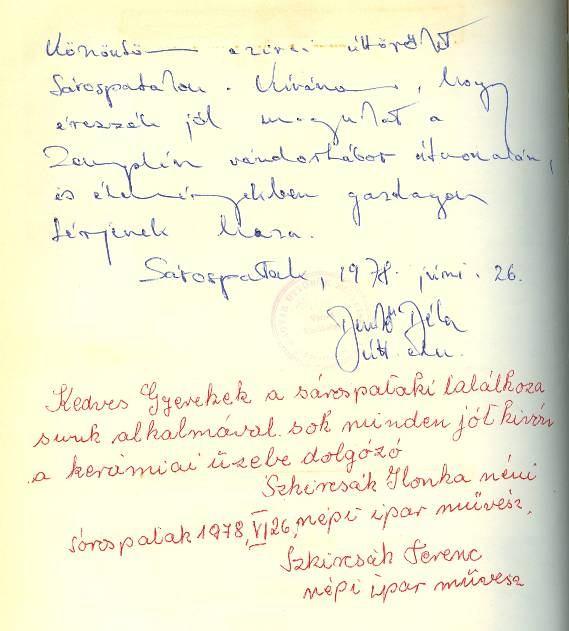 Köszöntöm a zirci úttörőket
Sárospatakon. Kívánom, hogy
érezzék jól magukat a
Zemplén vándortábor útvonalán,
és élményekben gazdagon
térjenek haza.
Sárospatak, 1978. júni. 26.
Béla
Kedves Gyerekek a sárospataki találkoza
sunk alkalmával sok minden jót kiván
a kerámiai üzebe dolgózó
Szkircsák Ilonka néni
Sárospatak 1978, VI 26, népi ipar művész,
Szkircsák Ferenc
népi ipar művesz